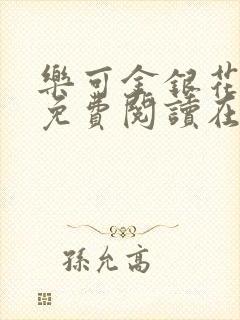 樂可金銀花
免費閱讀在
孫允高